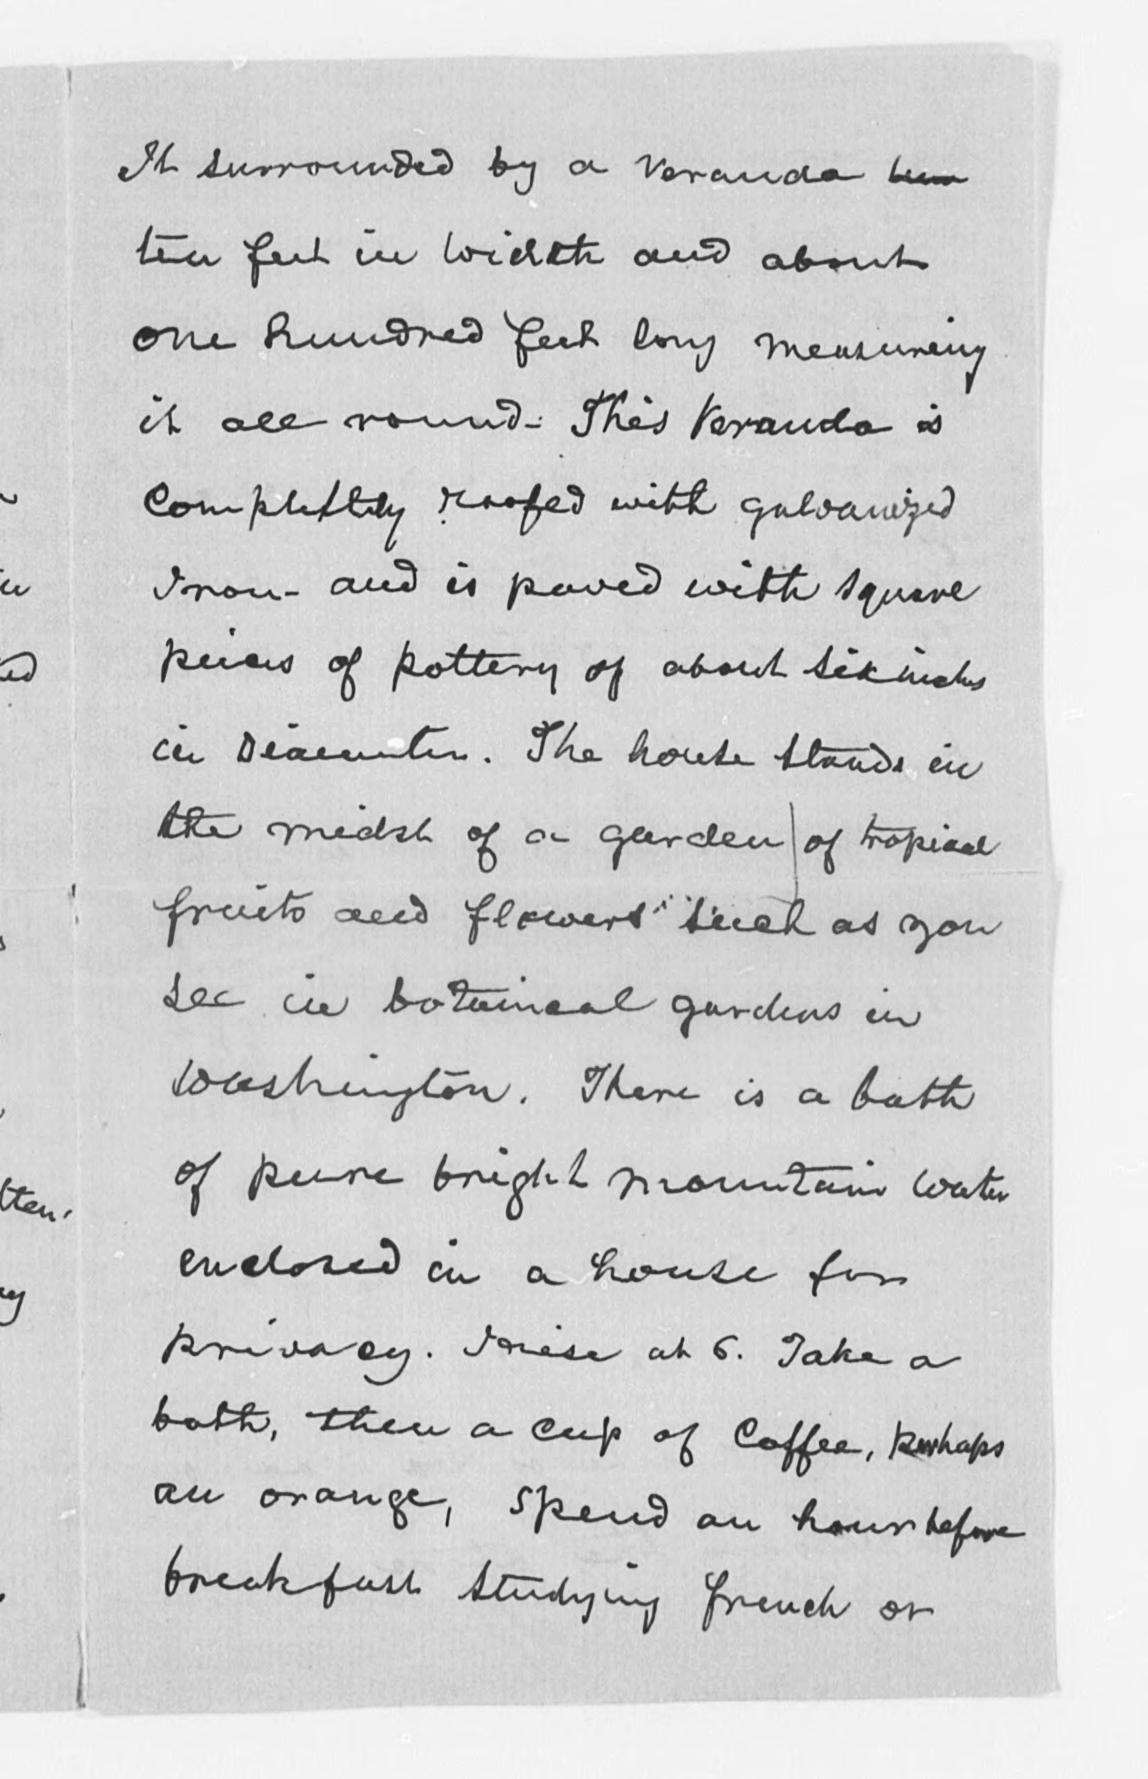 It surrounded by a Veranda
ten feet in width and about
one hundred feet long measureing
it all round. This Veranda is
Completely roofed with galvanized
Iron - and is paved with square
peices of pottery of about six inches
in Diameter. The house stands in
the midst of a garden of tropical
fruits and flowers such as you
see in botanical gardens in
Washington. There is a bath
of pure bright mountain water
enclosed in a house for
privacy. I rise at 6. Take a
bath, then a cup of Coffee, perhaps
an orange, spend an hour before
breakfast studying french or